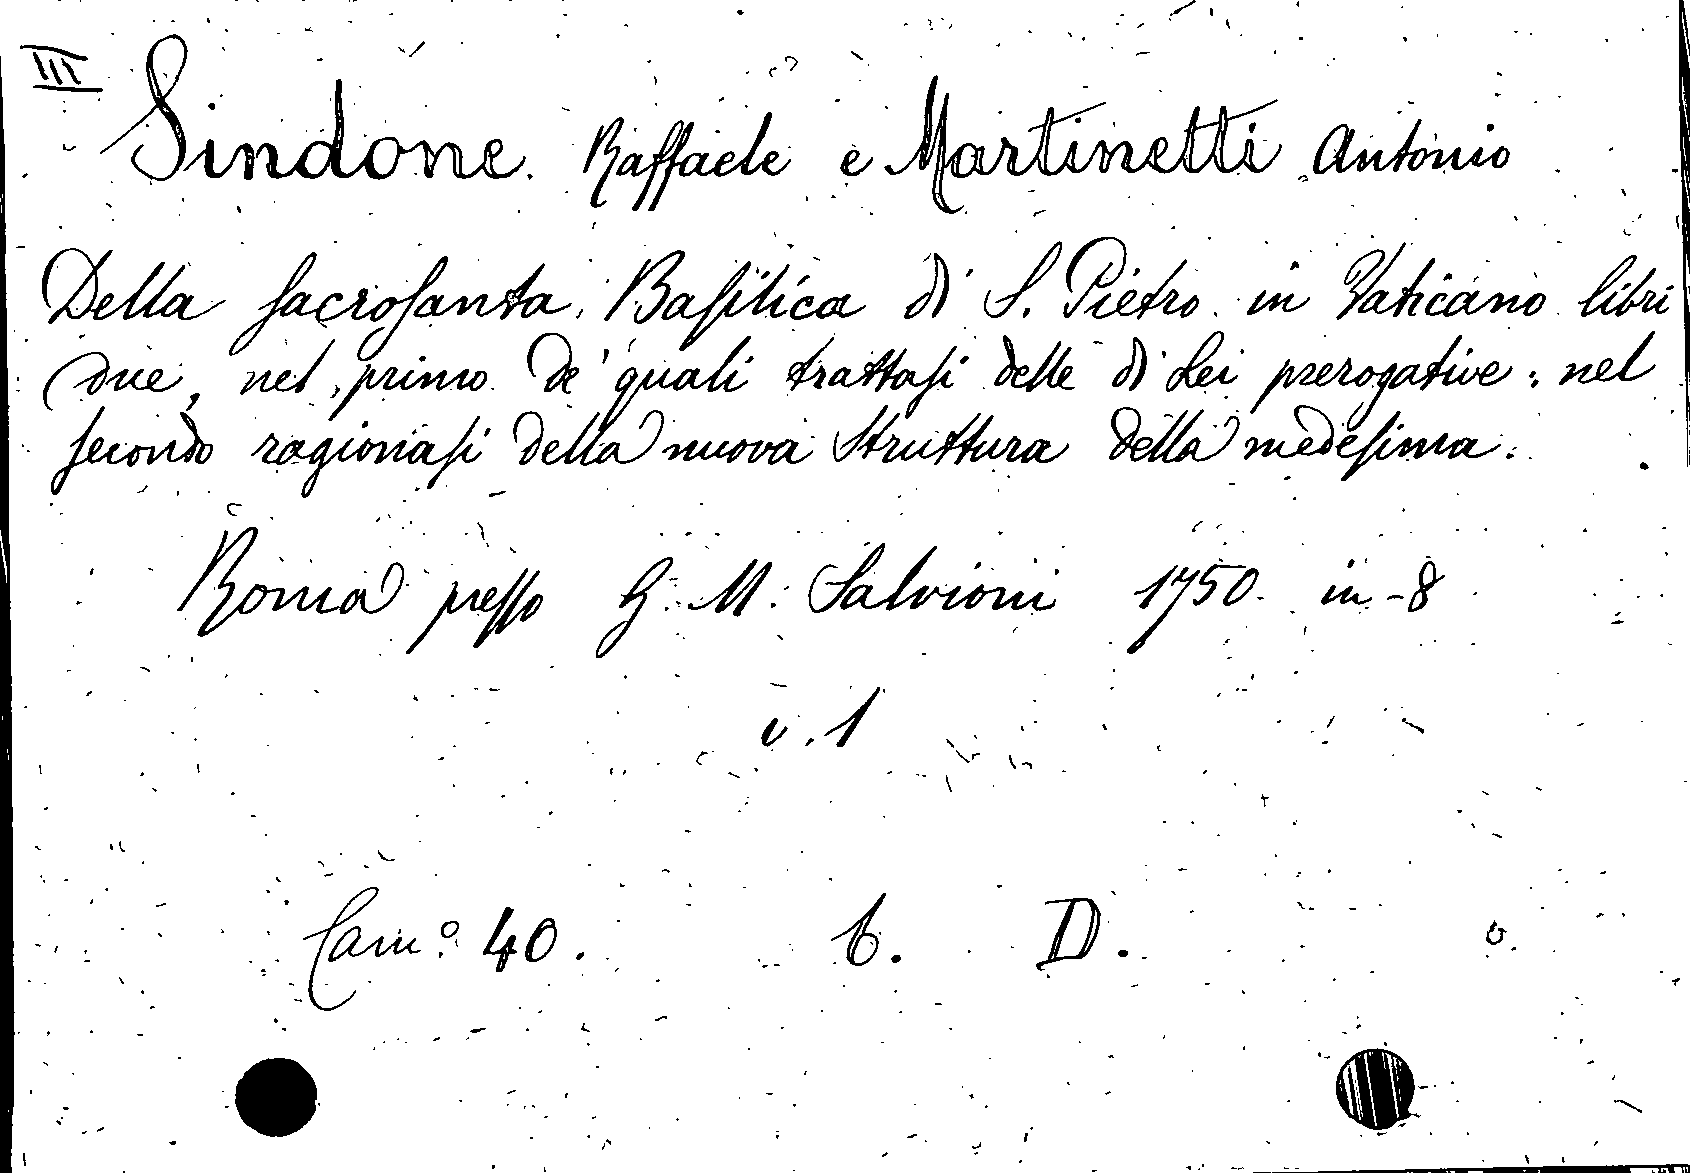 III
Sindone Raffaele e Martinetti Antonio
Della sacrosanta Basilica di S. Pietro in Vaticano libri
due, nel primo de' quali trattasi delle di Lei prerogative: nel
secondo ragionasi della nuova struttura della medesima.
Roma presso G. M. Salvioni 1750. in-8
v. 1
Cam.º 40. 6. D.